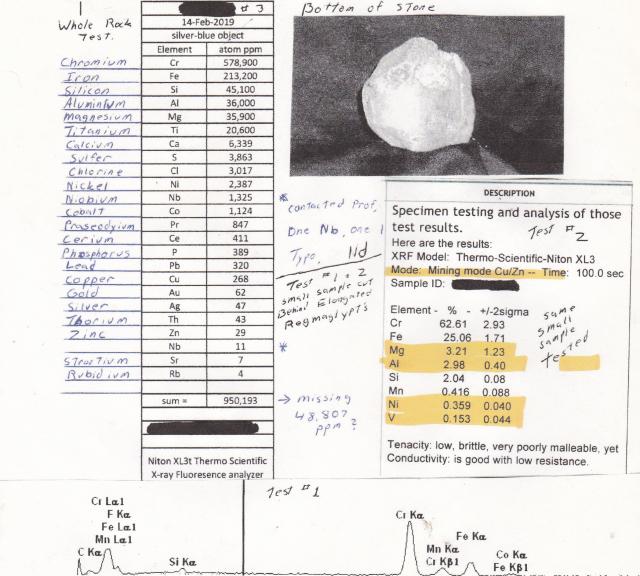 Whole Rock
Test.
# 3
14-Feb-2019
silver-blue object
Element atom ppm
Chromium Cr 578,900
Iron Fe 213,200
Silicon Si 45,100
Aluminium Al 36,000
Magnesium Mg 35,900
Titanium Ti 20,600
Calcium Ca 6,339
Sulfer S 3,863
Chlorine Cl 3,017
Nickel Ni 2,387
Niobium Nb 1,325
Cobalt Co 1,124
Praseodyium Pr 847
Cerium Ce 411
Phosphorus P 389
Lead Pb 320
Copper Cu 268
Gold Au 62
Silver Ag 47
Thorium Th 43
Zinc Zn 29
Nb 11
Strotium Sr 7
Rubidium Rb 4
sum = 950,193
Niton XL3t Thermo Scientific
X-ray Fluoresence analyzer
Bottom of Stone
* contacted Prof.
One Nb, one
Typo.
Test # 1 & 2
small sample cut
Behind Elongated
Regmaglypts
*
→ missing
48,807
ppm ?
DESCRIPTION
Specimen testing and analysis of those
test results.
Test # 2
Here are the results:
XRF Model: Thermo-Scientific-Niton XL3
Mode: Mining mode Cu/Zn -- Time: 100.0 sec
Sample ID:
Element - % - +/-2sigma
Cr 62.61 2.93
Fe 25.06 1.71
Mg 3.21 1.23
Al 2.98 0.40
Si 2.04 0.08
Mn 0.416 0.088
Ni 0.359 0.040
V 0.153 0.044
same
small
sample
tested
Tenacity: low, brittle, very poorly malleable, yet
Conductivity: is good with low resistance.
Test # 1
Cr Lα1
F Kα
Fe Lα1
Mn Lα1
C Kα
Si Kα
Cr Kα
Mn Kα
Cr Kβ1
Fe Kα
Co Kα
Fe Kβ1